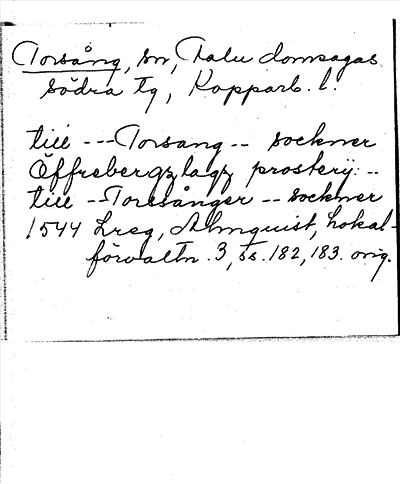 Torsång, sn, Falu domsagas
södra tg, Kopparb. l.
till --- Torsang -- sockner
Öffrebergzlagz prosterij: --
till -- Toresånger -- sockner
1544 Lreg, Almquist, Lokal-
förvaltn. 3, ss. 182, 183. orig.